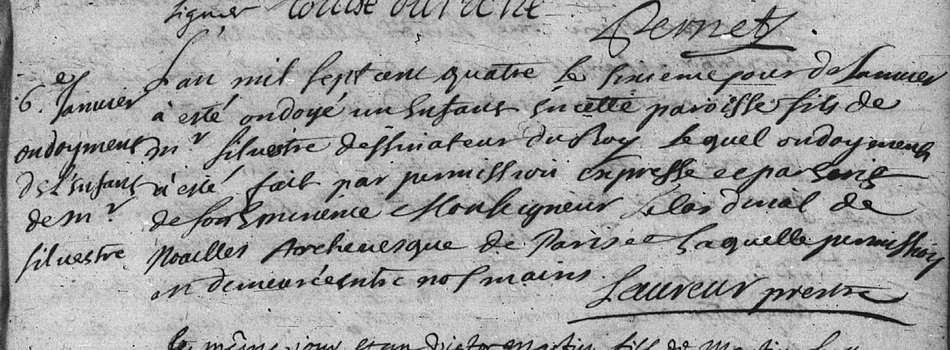 signer Louise
Pernet
L'an mil sept cent quatre le sixieme jour de Janvier
6e Janvier
à esté ondoyé un Enfant En cette paroisse fils de
ondoyment
mr silvestre dessinateur du Roy Lequel ondoyment
de L'enfant
à esté fait par permission Expresse et par Ecris
de mr
de son Eminence Monseigneur Le Cardinal de
silvestre
Noailles Archevesque de Paris Laquelle permission
demeurée entre nos mains
Laureur prestre
Le même jour et an fils de